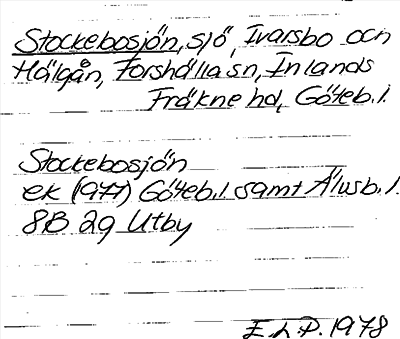 Stockebosjön, sjö, Ivarsbo och
Hälgån, Forshälla sn, Inlands
Fräkne hd, Göteb.l.
Stockebosjön
ek (1977) Göteb.l. samt Älvsb.l.
8B 2g Utby
E.L.P. 1978